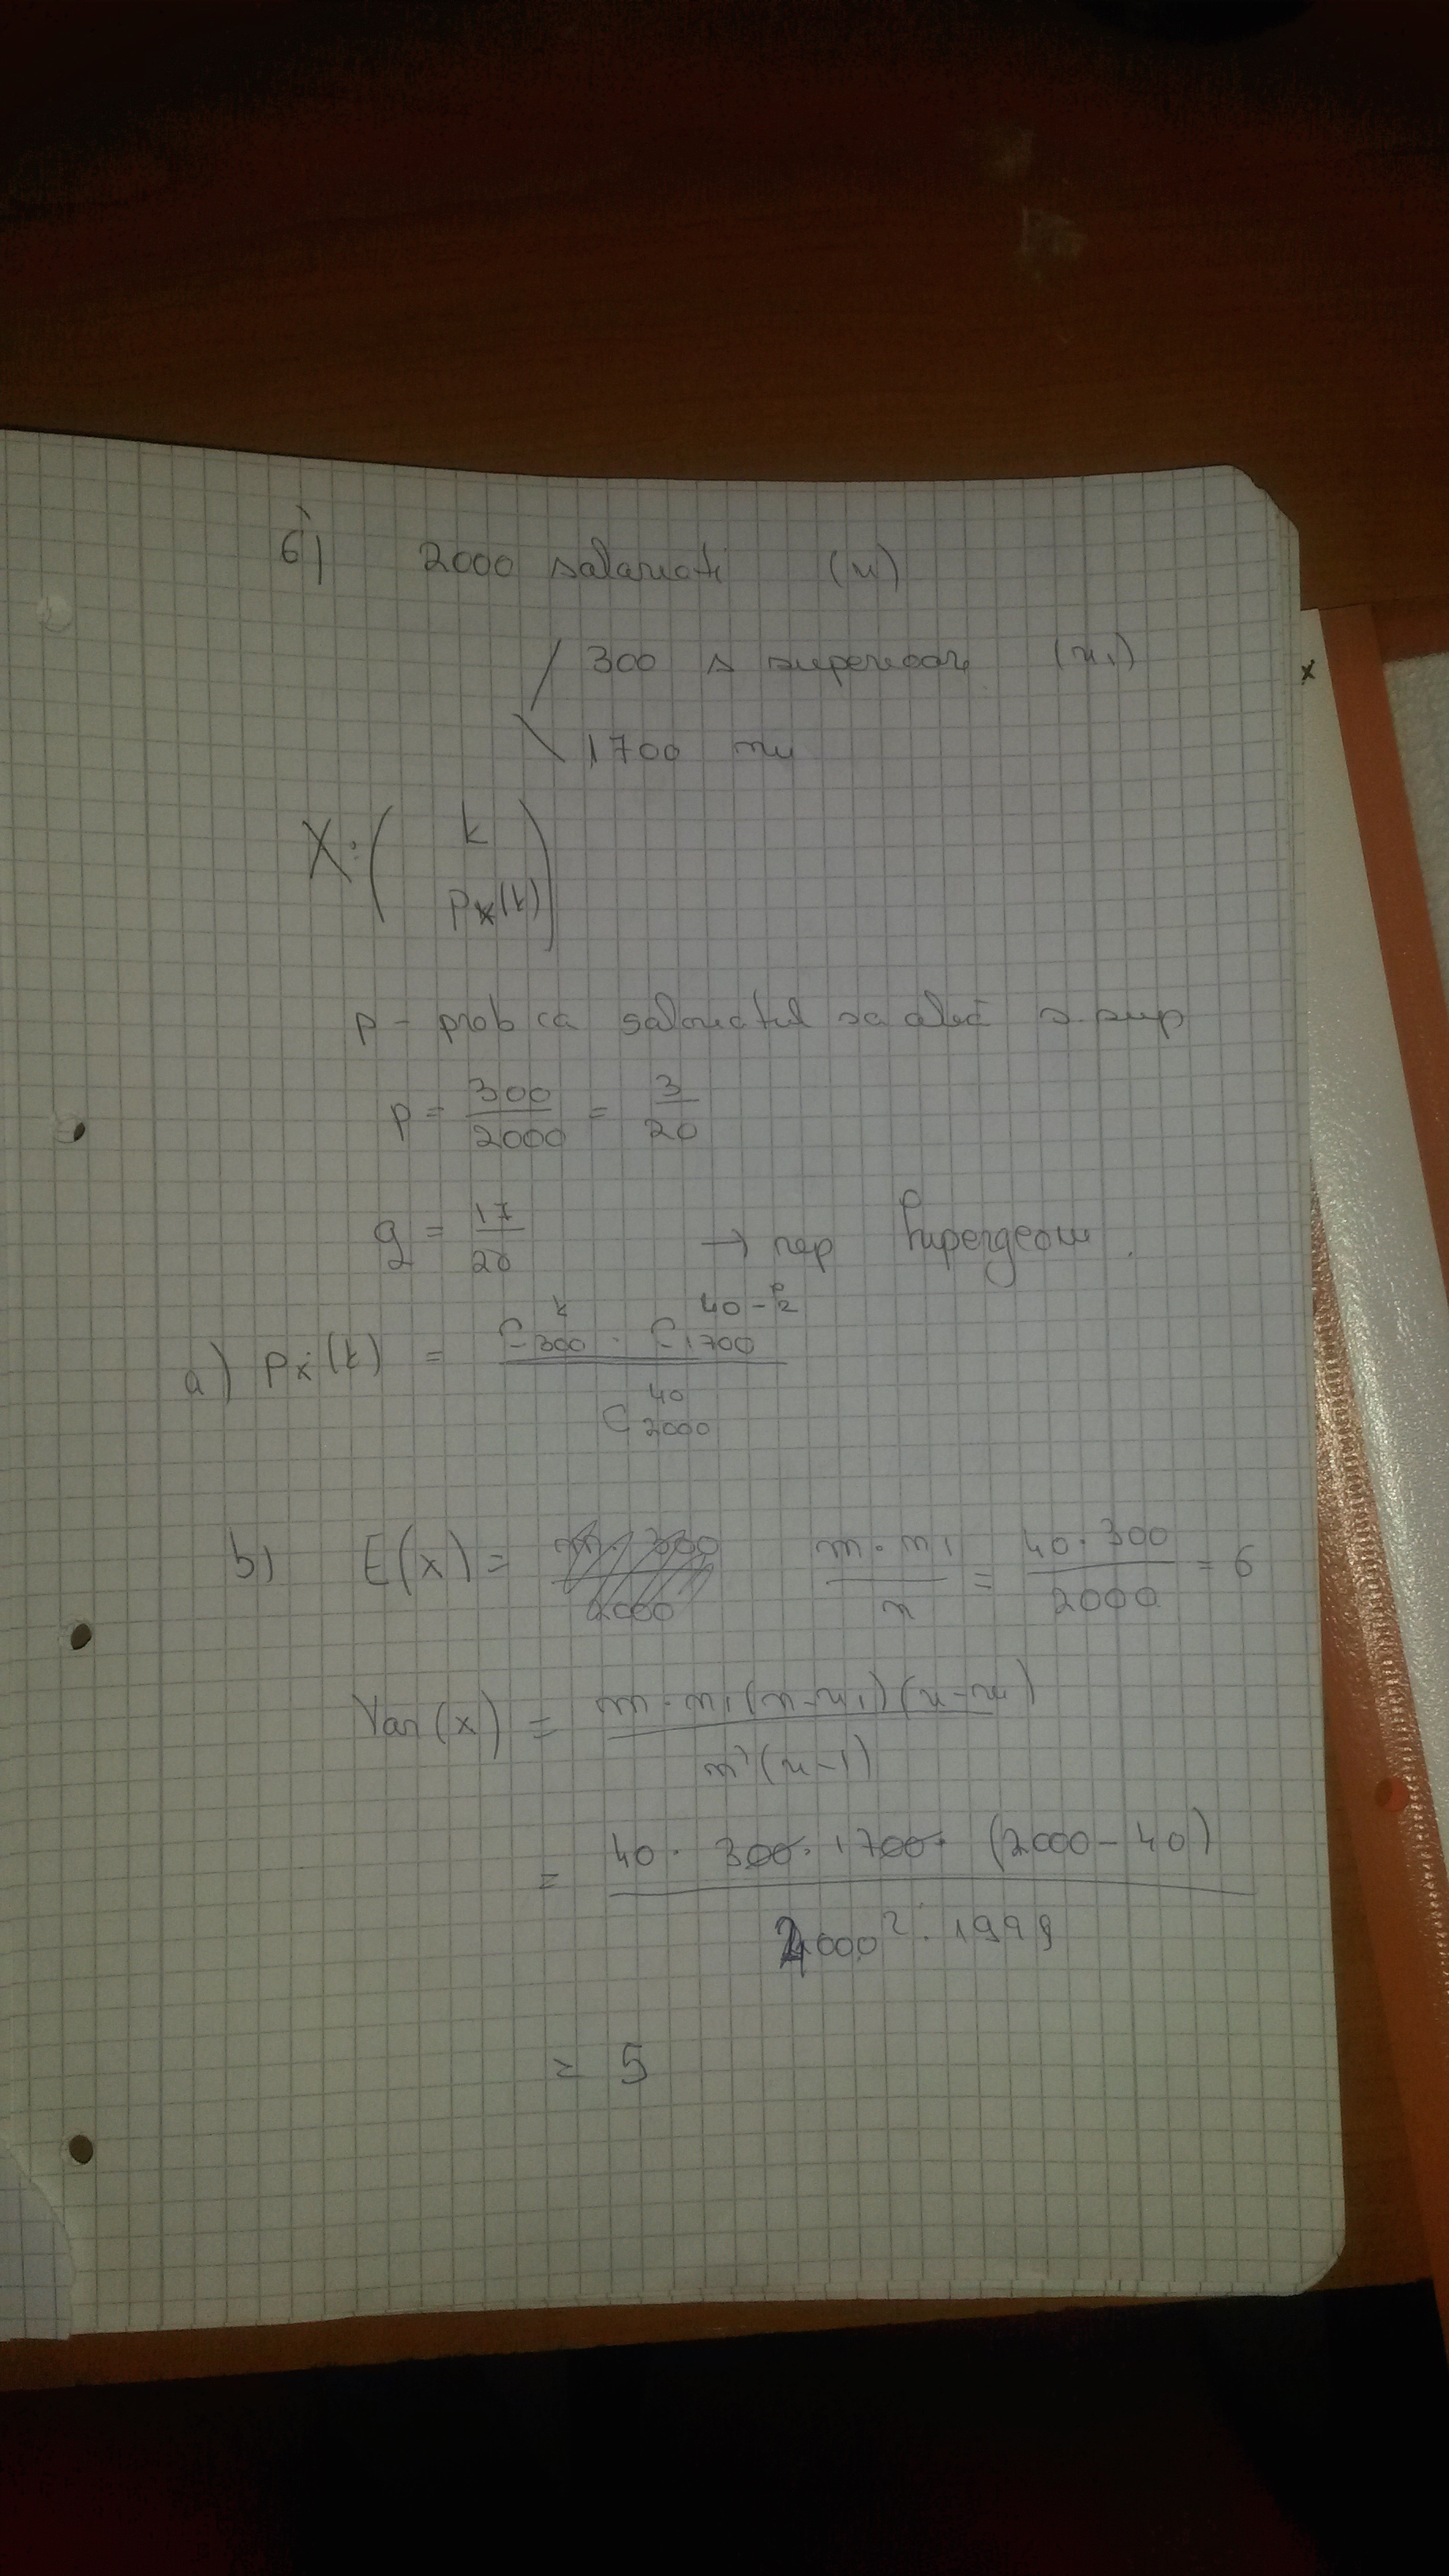 6) 2000 salariati (n)
300 s superioare (n1)
1700 nu
X: ( k
px(k) )
p - prob ca salariatul sa aibă s. sup
p = 300/2000 = 3/20
q = 17/20 → rep hipergeom.
a) px(k) = C_300^k · C_1700^(40-k) / C_2000^40
b) E(x) = m · n1 / n = 40 · 300 / 2000 = 6
Var(x) = m · n1 (n-n1) (n-m) / n²(n-1)
= 40 · 300 · 1700 · (2000-40) / 2000² · 1999
= 5
x